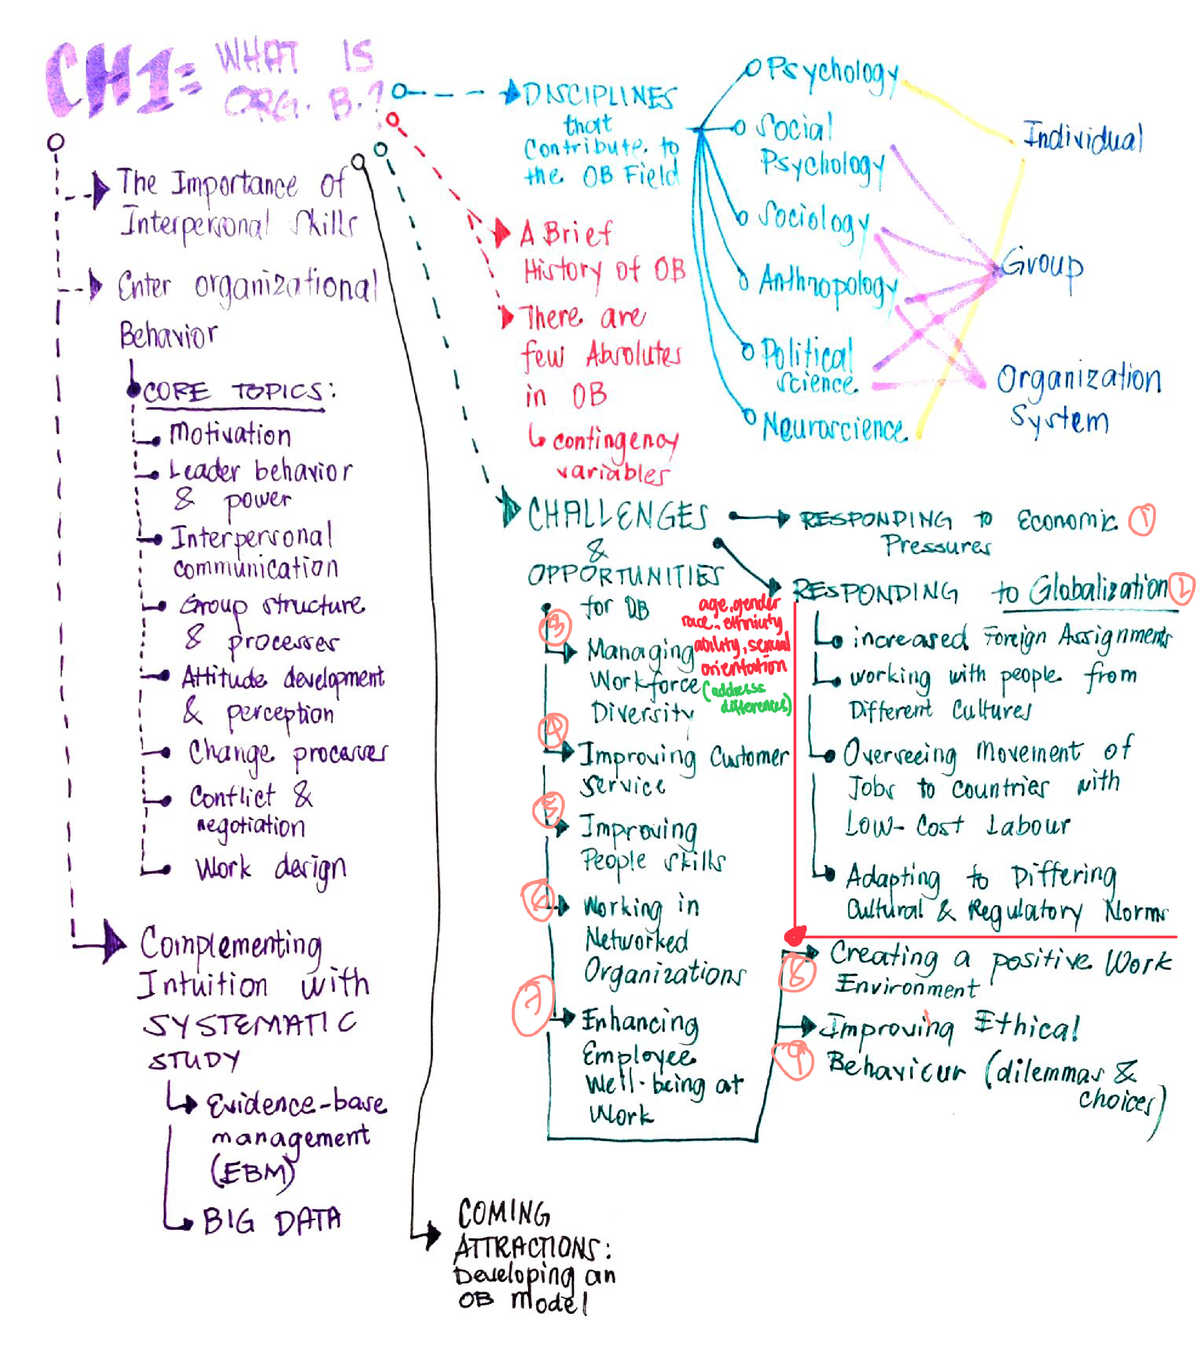 CH1: WHAT IS
ORG. B.?
The Importance of
Interpersonal Skills
Enter organizational
Behavior
CORE TOPICS:
Motivation
Leader behavior
& power
Interpersonal
communication
Group structure
& processes
Attitude development
& perception
Change processes
Conflict &
negotiation
Work design
Complementing
Intuition with
SYSTEMATIC
STUDY
Evidence-base
management
(EBM)
BIG DATA
DISCIPLINES
that
Contribute to
the OB Field
Psychology
Social
Psychology
Sociology
Anthropology
Political
Science
Neuroscience
Individual
Group
Organization
System
A Brief
History of OB
There are
few Absolutes
in OB
contingency
variables
CHALLENGES
&
OPPORTUNITIES
for OB
RESPONDING to Economic 1
Pressures
RESPONDING to Globalization 2
increased Foreign Assignments
working with people from
Different Cultures
Overseeing Movement of
Jobs to countries with
Low-Cost Labour
Adapting to Differing
Cultural & Regulatory Norms
3
Managing
Workforce
Diversity
age, gender
race, ethnicity
ability, sexual
orientation
(address
differences)
4
Improving Customer
Service
5
Improving
People skills
6
Working in
Networked
Organizations
7
Enhancing
Employee
Well-being at
Work
8
Creating a positive Work
Environment
9
Improving Ethical
Behaviour (dilemmas &
choices)
COMING
ATTRACTIONS:
Developing an
OB model